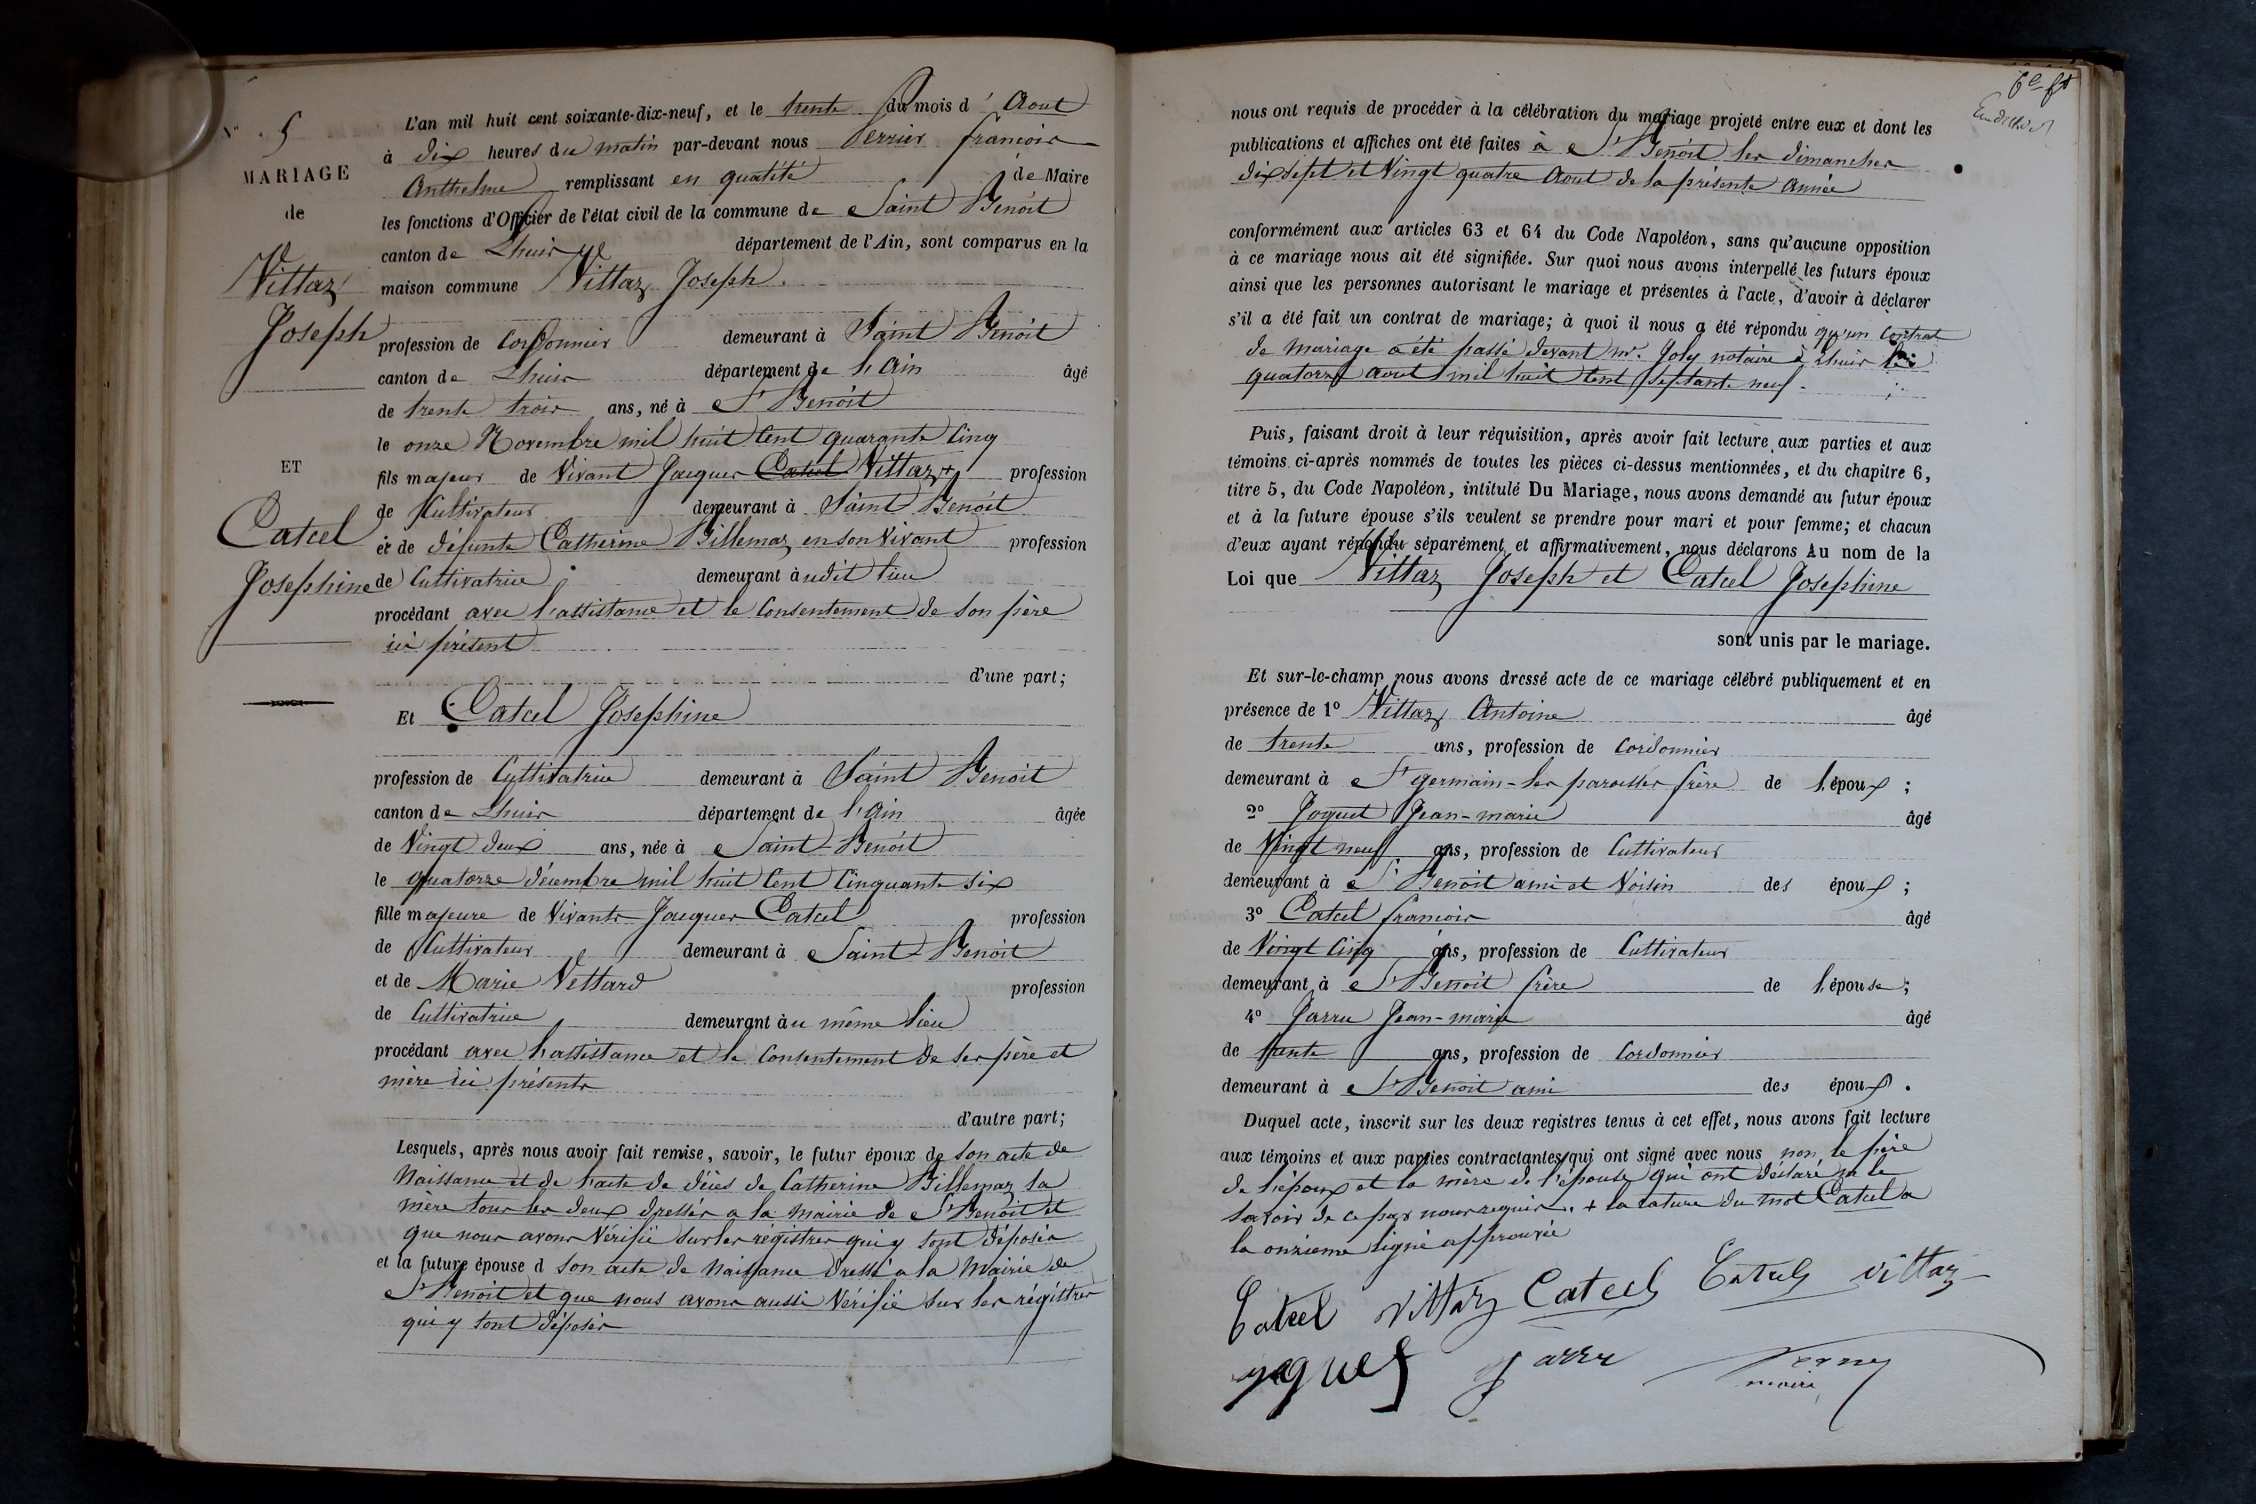 N° 5
MARIAGE
de
Vittaz
Joseph
ET
Catcel
Josephine
L'an mil huit cent soixante-dix-neuf, et le trente du mois d' Aout
à dix heures du matin par-devant nous Perrier francois
Anthelme remplissant en qualité de Maire
les fonctions d'Officier de l'état civil de la commune de Saint Benoit
canton de Lhuis département de l'Ain, sont comparus en la
maison commune Vittaz Joseph.
profession de Cordonnier demeurant à Saint Benoit
canton de Lhuis département de l'Ain âgé
de trente trois ans, né à St Benoit
le onze Novembre mil huit Cent quarante Cinq
fils majeur de Vivant Jacques Catcel Vittaz + profession
de Cultivateur demeurant à Saint Benoit
et de défunte Catherine Billemaz en son Vivant profession
de Cultivatrice demeurant àudit lieu
procédant avec l'assistance et le Consentement de son père
ici présent
d'une part;
Et Catcel Josephine
profession de Cultivatrice demeurant à Saint Benoit
canton de Lhuis département de l'Ain âgée
de Vingt deux ans, née à Saint-Benoit
le quatorze décembre mil huit Cent Cinquante six
fille majeure de Vivants Jacques Catcel profession
de Cultivateur demeurant à Saint-Benoit
et de Marie Vettard profession
de Cultivatrice demeurant àu même lieu
procédant avec l'assistance et le Consentement de ses père et
mère ici présents
d'autre part;
Lesquels, après nous avoir fait remise, savoir, le futur époux de son acte de
Naissance et de l'acte de décès de Catherine Billemaz sa
mère tous les deux dressés a la Mairie de St Benoit et
que nous avons Vérifié sur les régistres qui y sont déposés
et la future épouse d son acte de Naissance dressé a la Mairie de
St Benoit et que nous avons aussi Vérifié sur les régistres
qui y sont déposés
nous ont requis de procéder à la célébration du mariage projeté entre eux et dont les
publications et affiches ont été faites à St Benoit les dimanches
dix sept et Vingt quatre Aout de la présente Année
conformément aux articles 63 et 64 du Code Napoléon, sans qu'aucune opposition
à ce mariage nous ait été signifiée. Sur quoi nous avons interpellé les futurs époux
ainsi que les personnes autorisant le mariage et présentes à l'acte, d'avoir à déclarer
s'il a été fait un contrat de mariage; à quoi il nous a été répondu qu'un Contrat
de Mariage a été passé devant Mr. Joly notaire à Lhuis le
quatorze aout mil huit Cent septante neuf.
Puis, faisant droit à leur réquisition, après avoir fait lecture aux parties et aux
témoins ci-après nommés de toutes les pièces ci-dessus mentionnées, et du chapitre 6,
titre 5, du Code Napoléon, intitulé Du Mariage, nous avons demandé au futur époux
et à la future épouse s'ils veulent se prendre pour mari et pour femme; et chacun
d'eux ayant répondu séparément et affirmativement, nous déclarons Au nom de la
Loi que Vittaz Joseph et Catcel Josephine
sont unis par le mariage.
Et sur-le-champ nous avons dressé acte de ce mariage célébré publiquement et en
présence de 1° Vittaz Antoine âgé
de trente ans, profession de Cordonnier
demeurant à St germain-les paroisses frère de l'époux ;
2° Joguet Jean-marie âgé
de Vingt neuf ans, profession de Cultivateur
demeurant à St Benoit ami et Voisin des époux ;
3° Catcel francois âgé
de Vingt Cinq ans, profession de Cultivateur
demeurant à St Benoit frère de l'épouse ;
4° Jarru Jean-marie âgé
de trente ans, profession de Cordonnier
demeurant à St Benoit ami des époux .
Duquel acte, inscrit sur les deux registres tenus à cet effet, nous avons fait lecture
aux témoins et aux parties contractantes qui ont signé avec nous non le père
de l'époux et la mère de l'épouse qui ont déclaré ne le
savoir de ce par nous requis. + la rature du mot Catcel a
la onzieme ligne approuvée
Catcel Vittaz Catcel Catcel Vittaz
Jarru
maire